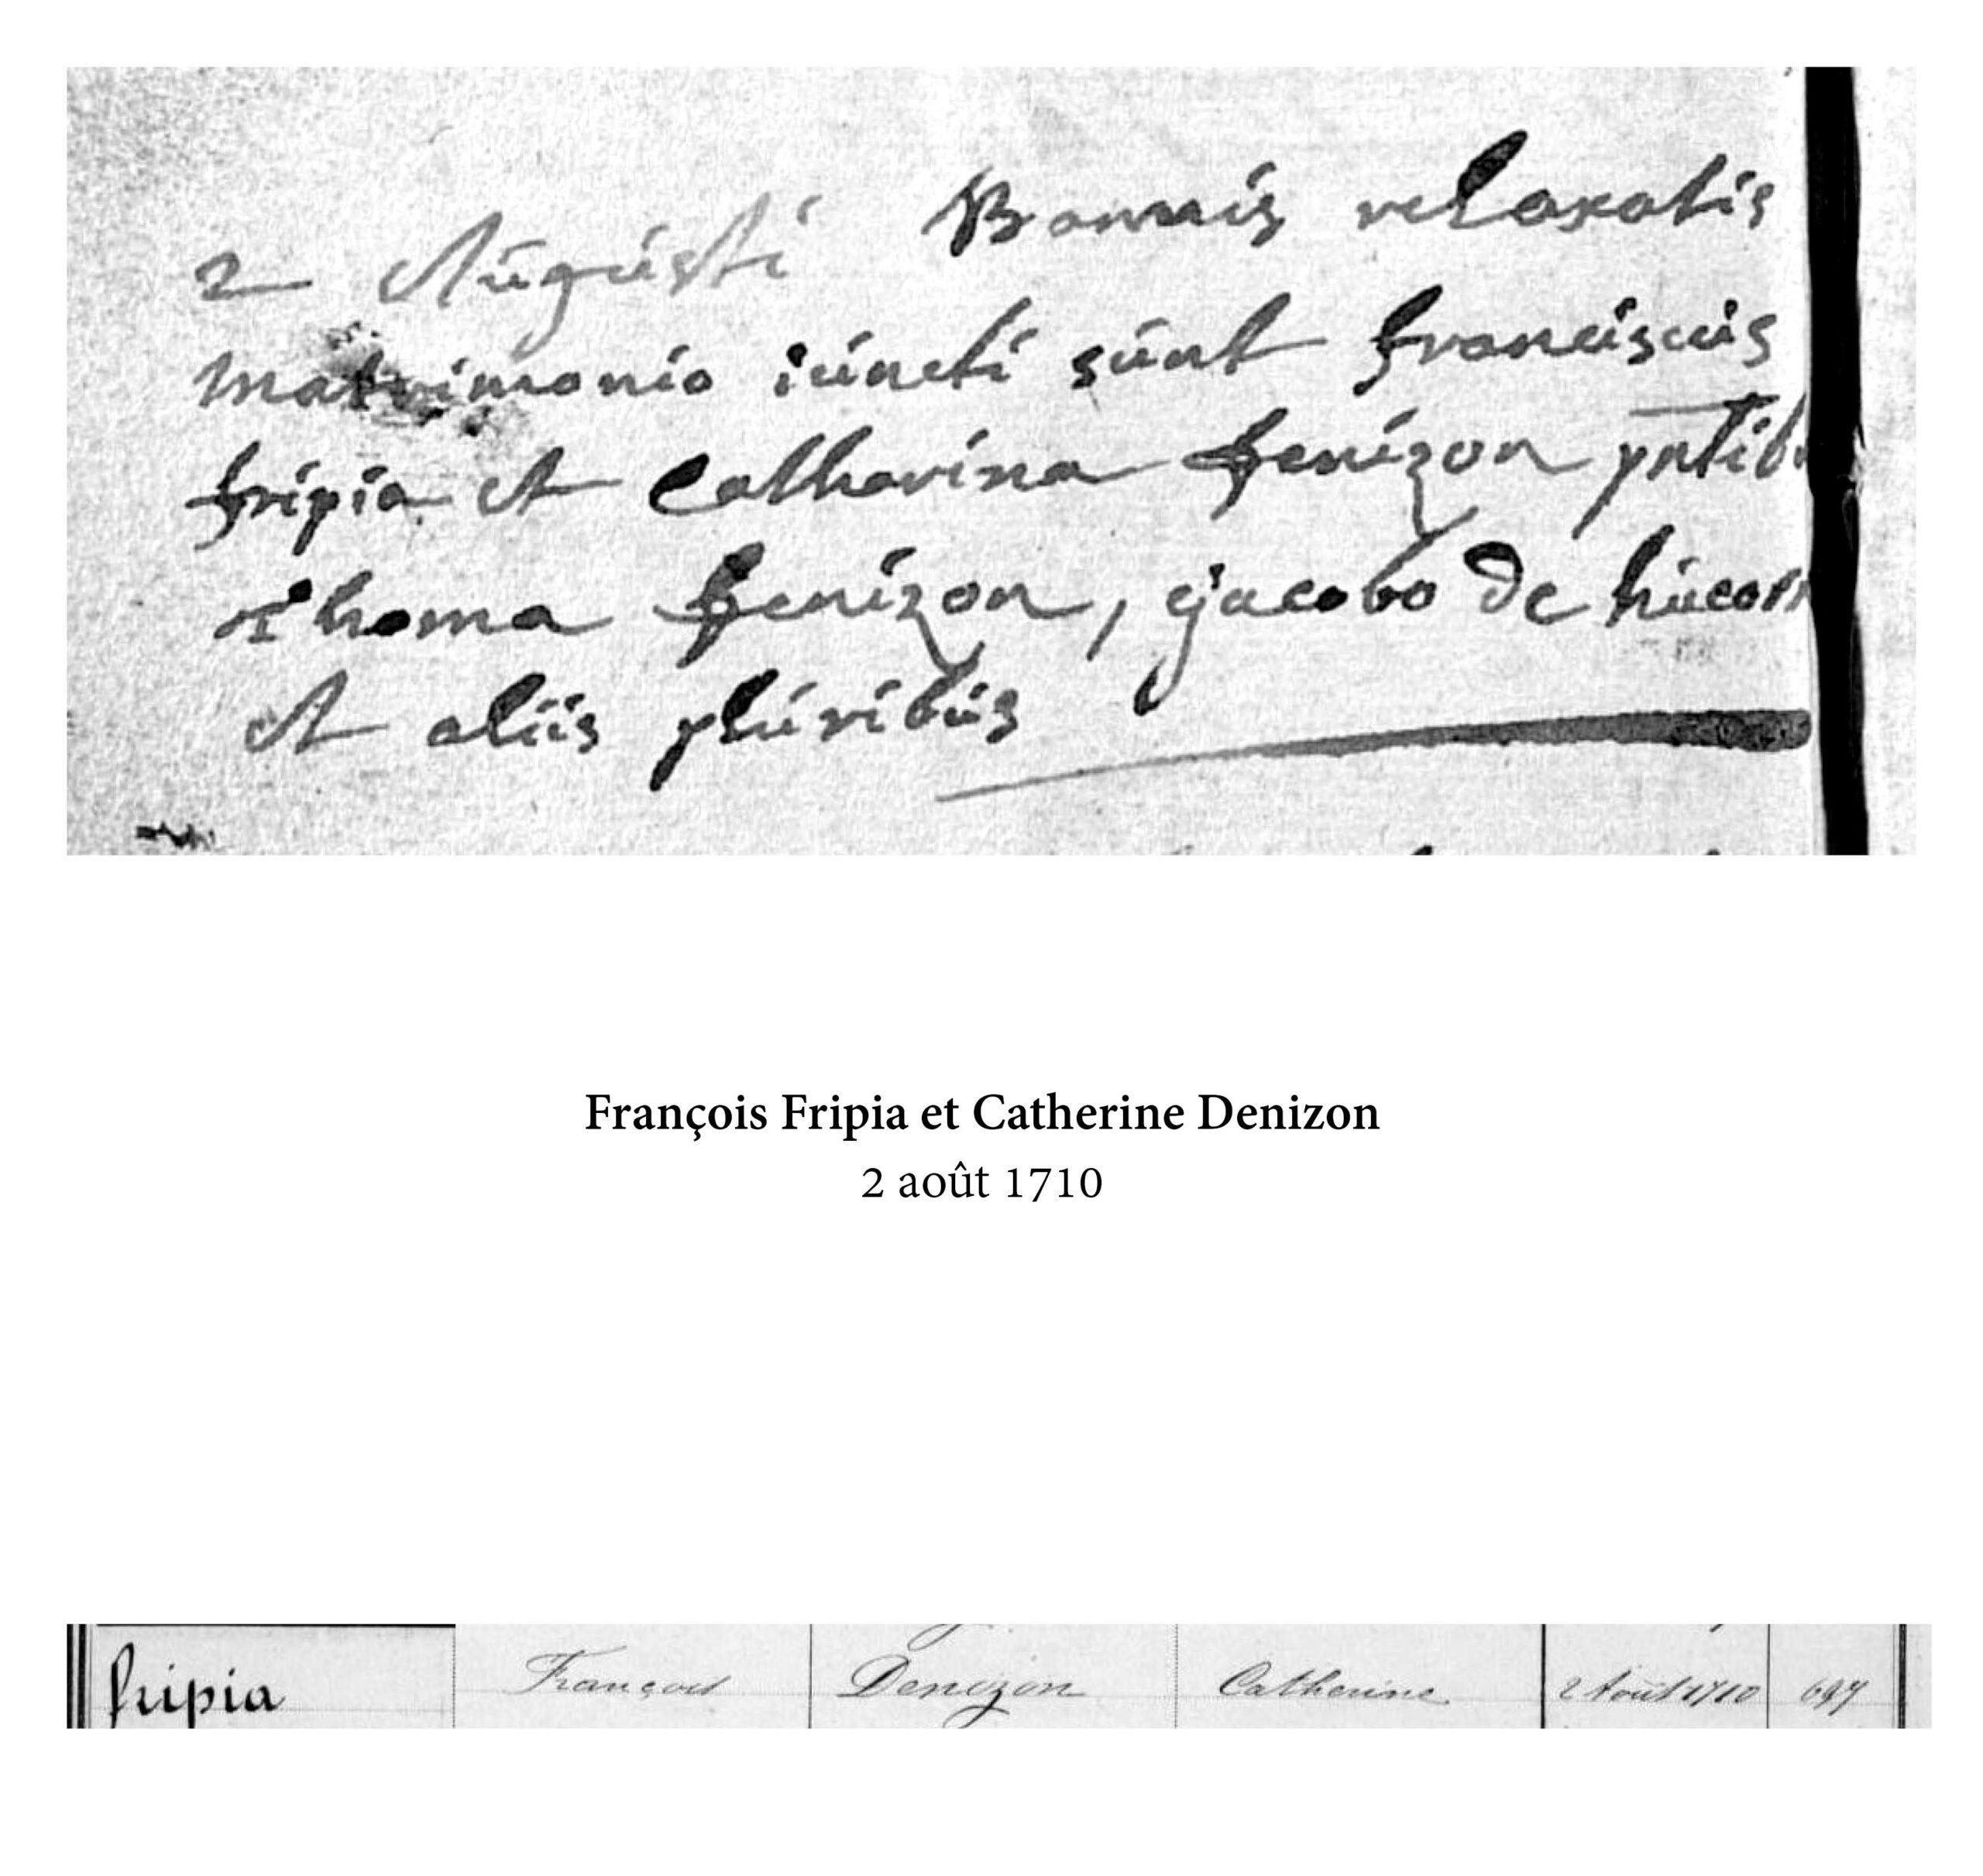 2 Augusti Bannis relaxatis
Matrimonio iuncti sunt franciscus
fripia et Catharina fenizon pntib
Thoma fenizon, Jacobo De
et aliis pluribus
François Fripia et Catherine Denizon
2 août 1710
fripia François Denizon Catherine 2 Août 1710